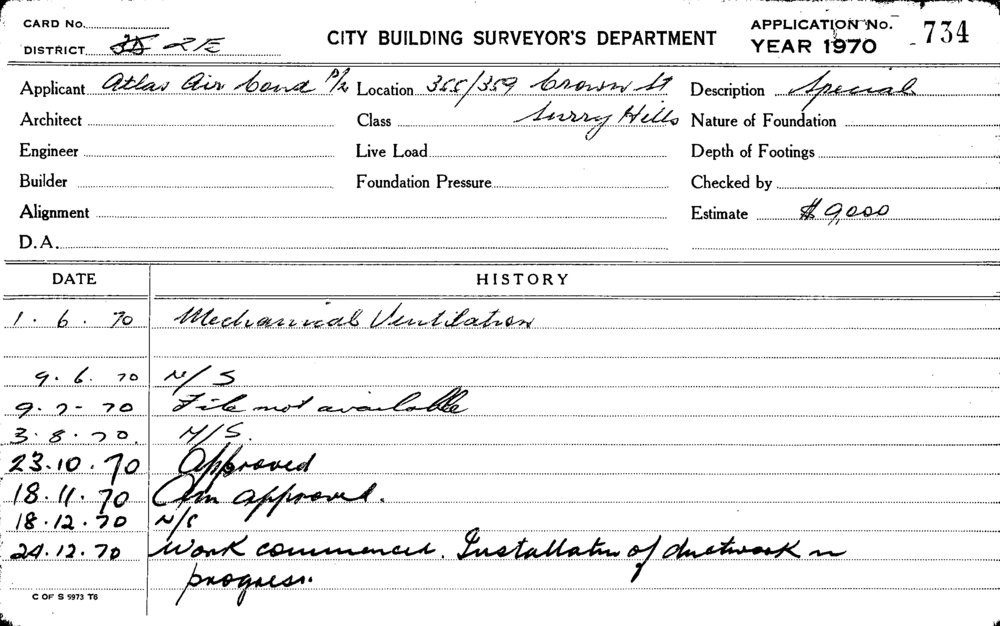 CARD No.
DISTRICT 2E
CITY BUILDING SURVEYOR'S DEPARTMENT
APPLICATION No. 734
YEAR 1970
Applicant Atlas Air Cond P/L Location 355/359 Crown St Description Special
Architect Class Surry Hills Nature of Foundation
Engineer Live Load Depth of Footings
Builder Foundation Pressure Checked by
Alignment Estimate $9,000
D.A.
DATE HISTORY
1.6.70 Mechanical Ventilation
9.6.70 N/S
9.7-70 File not available
3.8.70. N/S.
23.10.70 Approved
18.11.70 approved.
18.12.70 N/C
24.12.70 Work commenced. Installatn of ductwork in
progress.
C OF S 5973 T6